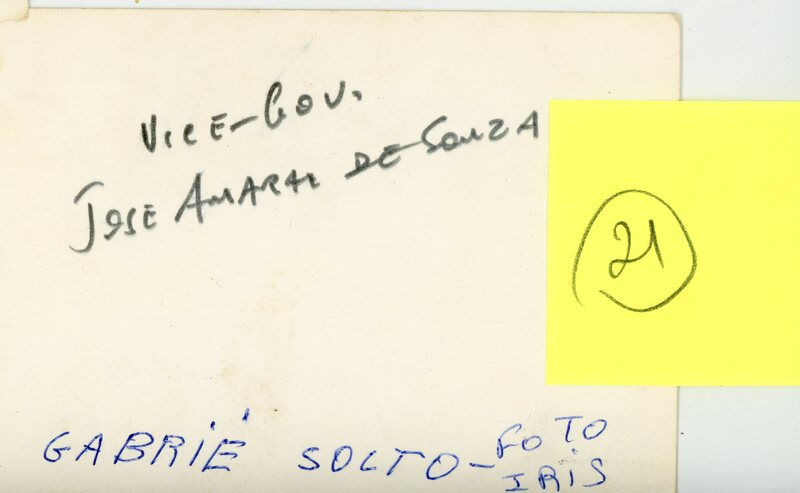 VICE-GOV.
JOSE AMARAL DE SOUZA
21
GABRIÉ SOLTO-FOTO
IRIS